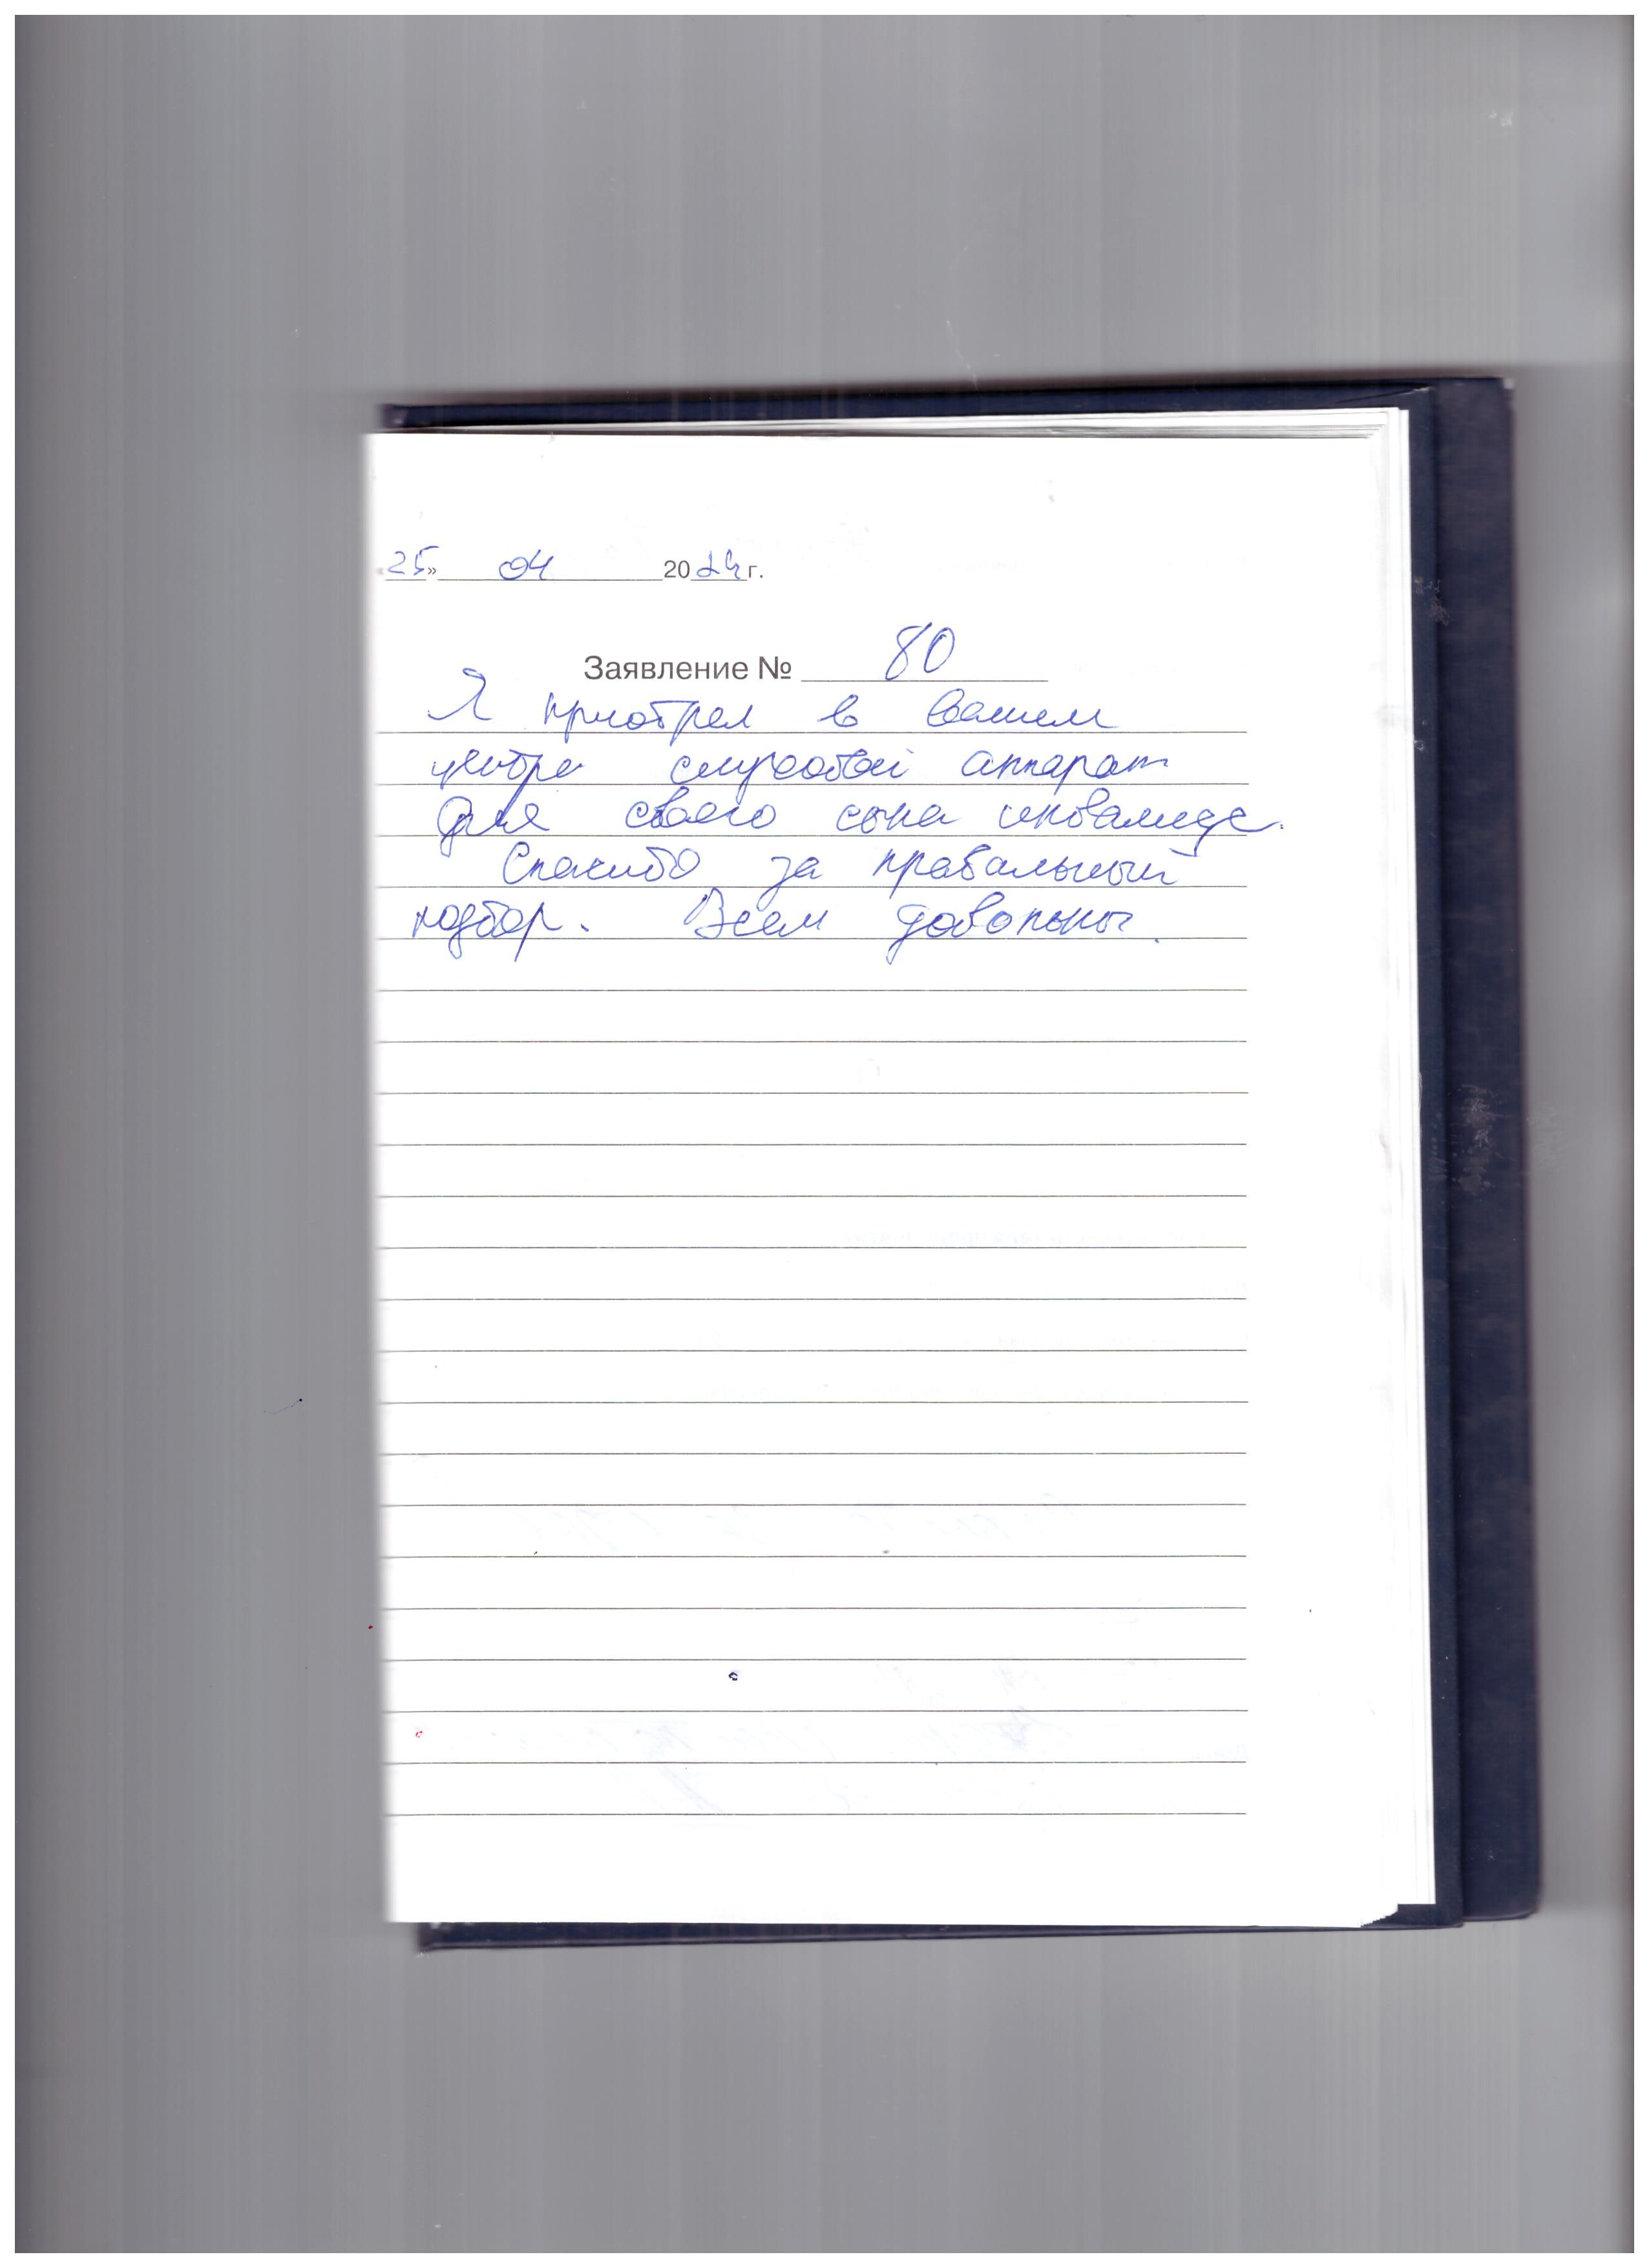 «25» 04 2024 г.
Заявление № 80
Я приобрел в вашем
центре слуховой аппарат
для своего сына инвалида.
Спасибо за правильный
подбор. Всем довольны.